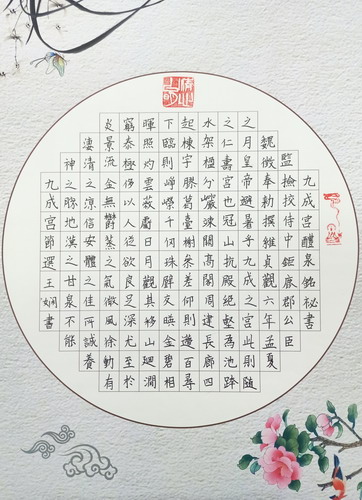 九成宮醴泉銘祕書
監撿挍侍中鉅鹿郡公臣
魏徵奉勑撰維貞觀六年孟夏
之月皇帝避暑乎九成之宮此則隨
之仁壽宮也冠山抗殿絕壑為池跨
水架楹分巖竦闕高閣周建長廊四
起棟宇膠葛臺榭叅差仰則百尋
下臨則崢嶸千仞珠璧交暎金碧相
暉照灼雲蔽虧日月觀其移山迴澗
窮泰極侈以人從欲良足深尤至於
炎景流金無鬱蒸之氣微風徐動有
淒清之涼信安體之佳所誠養
神之勝地漢之甘泉不能
九成宮節選王娴書